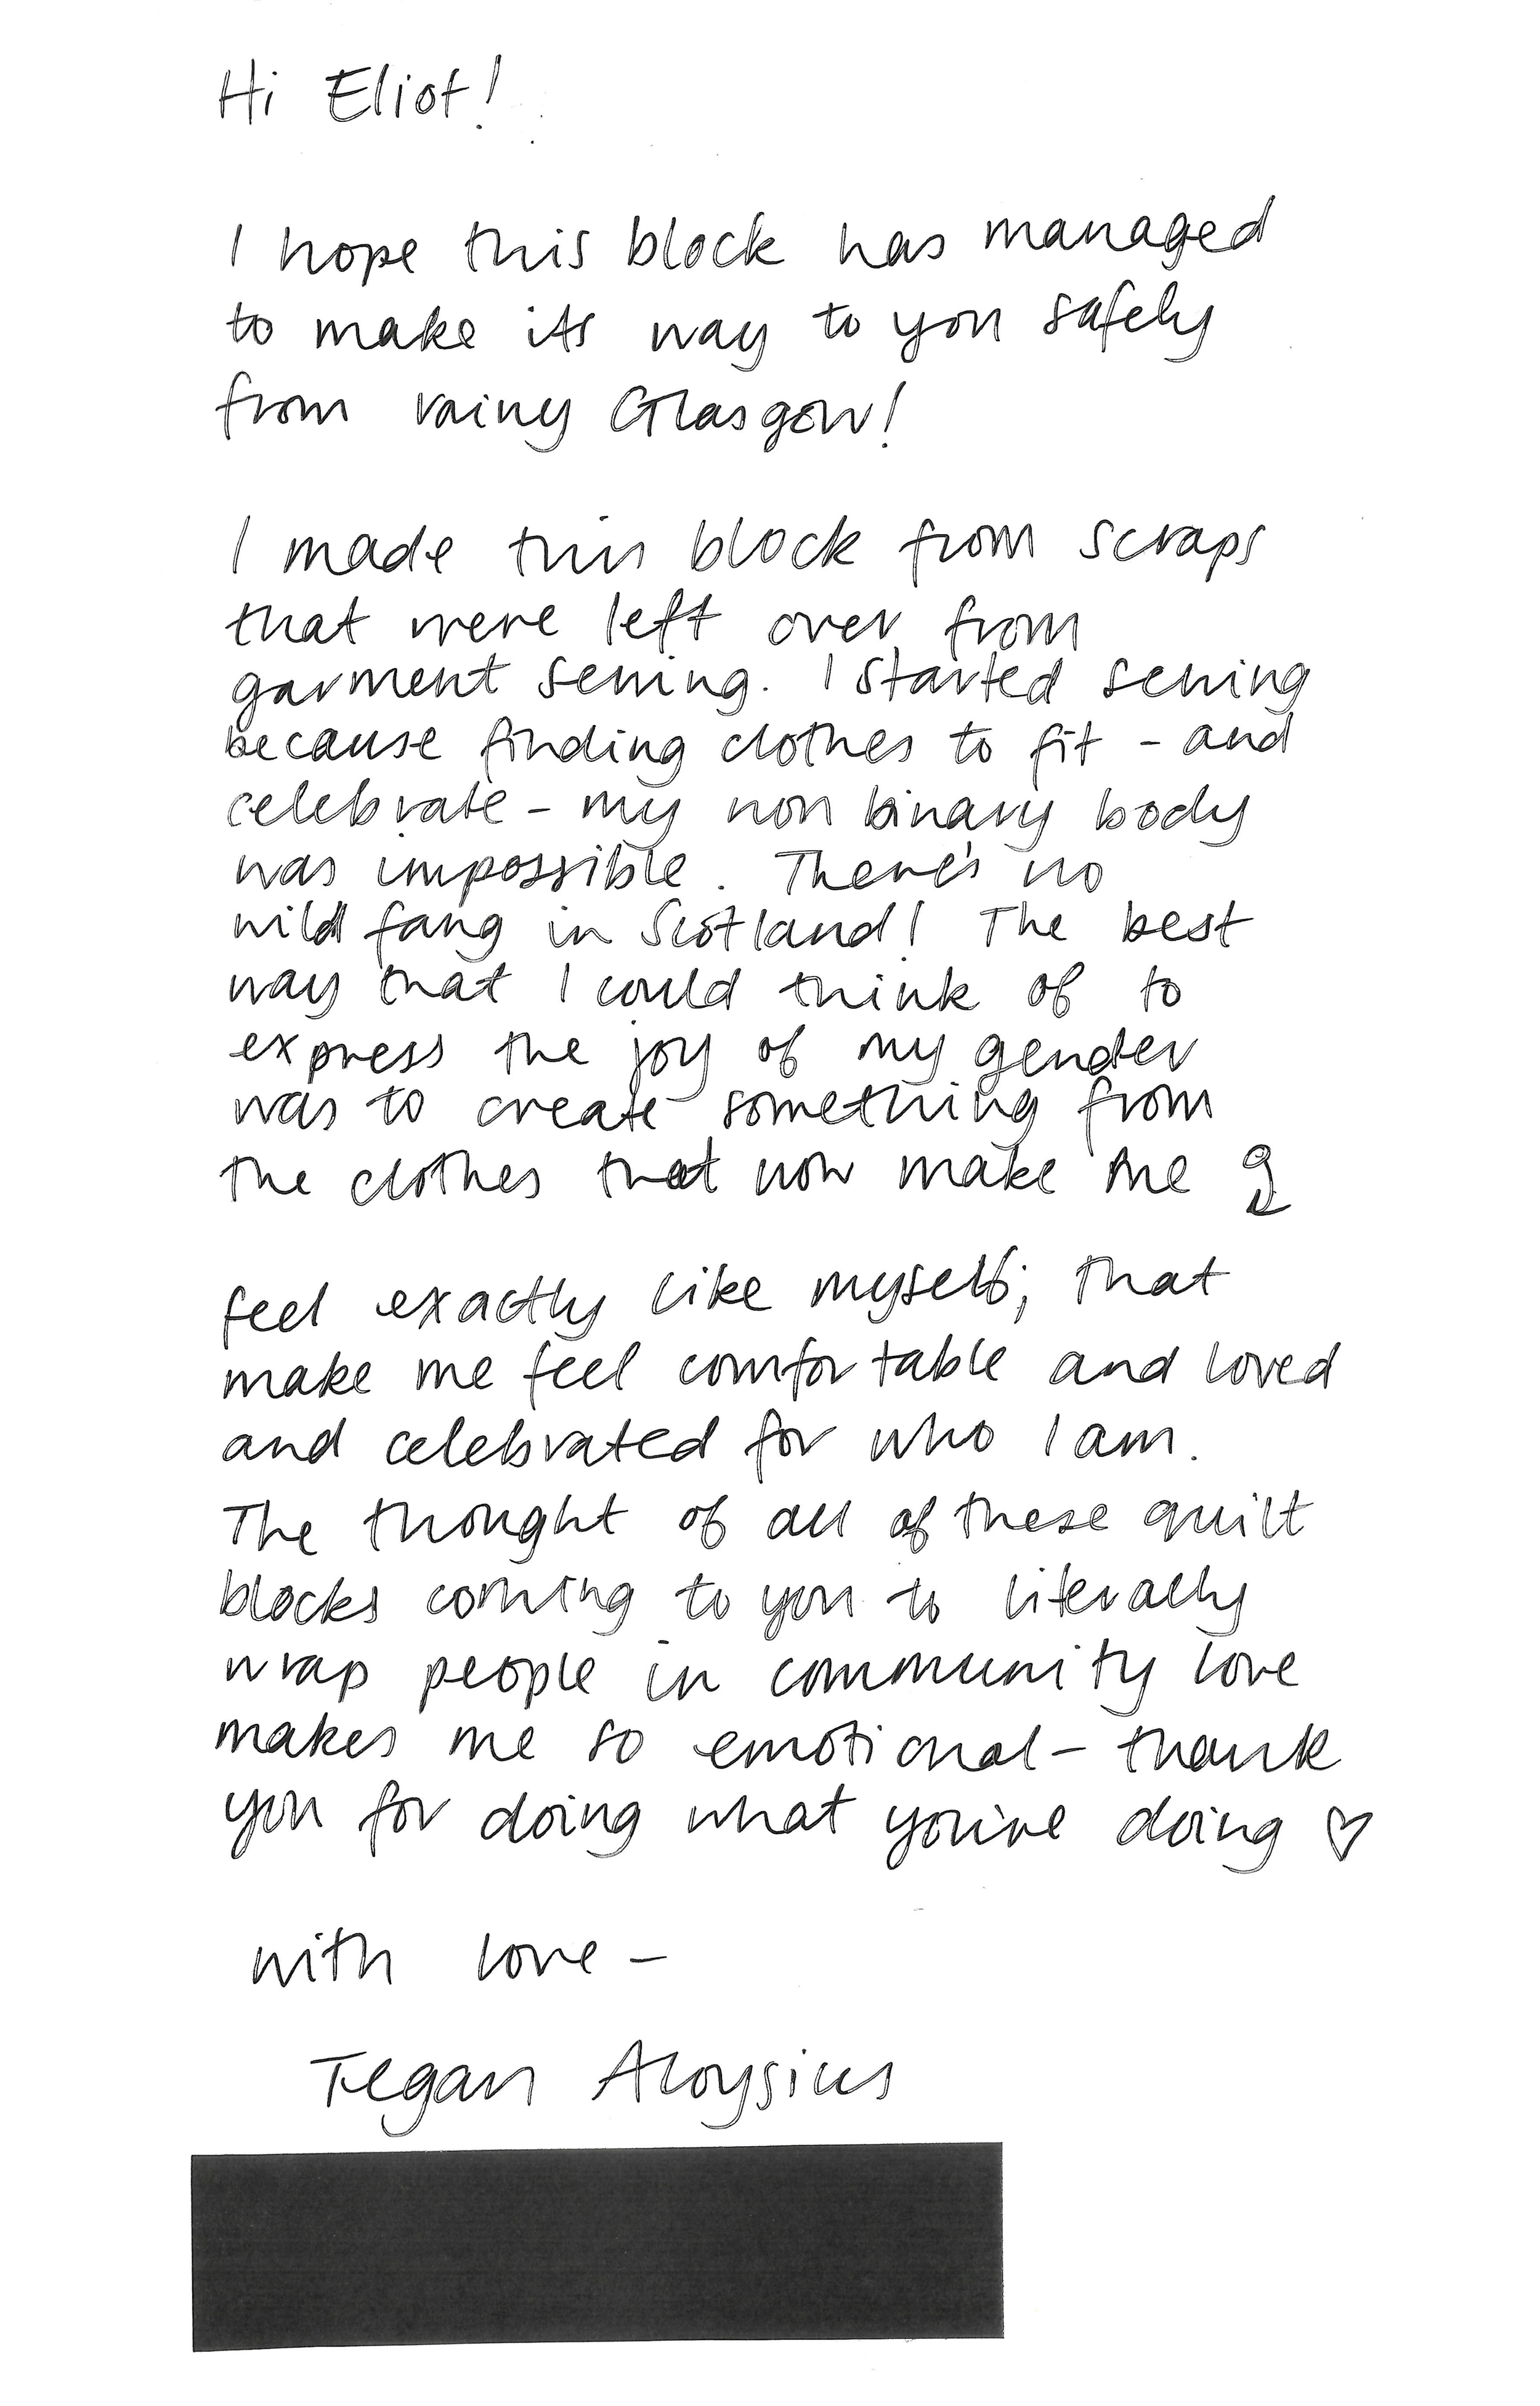 Hi Eliot!
I hope this block has managed
to make its way to you safely
from rainy Glasgow!
I made this block from scraps
that were left over from
garment sewing. I started sewing
because finding clothes to fit - and
celebrate - my non binary body
was impossible. There's no
wild fang in Scotland! The best
way that I could think of to
express the joy of my gender
was to create something from
the clothes that now make me
feel exactly like myself; that
make me feel comfortable and loved
and celebrated for who I am.
The thought of all of these quilt
blocks coming to you to literally
wrap people in community love
makes me so emotional - thank
you for doing what you're doing ♡
with love -
Tegan Aloysius